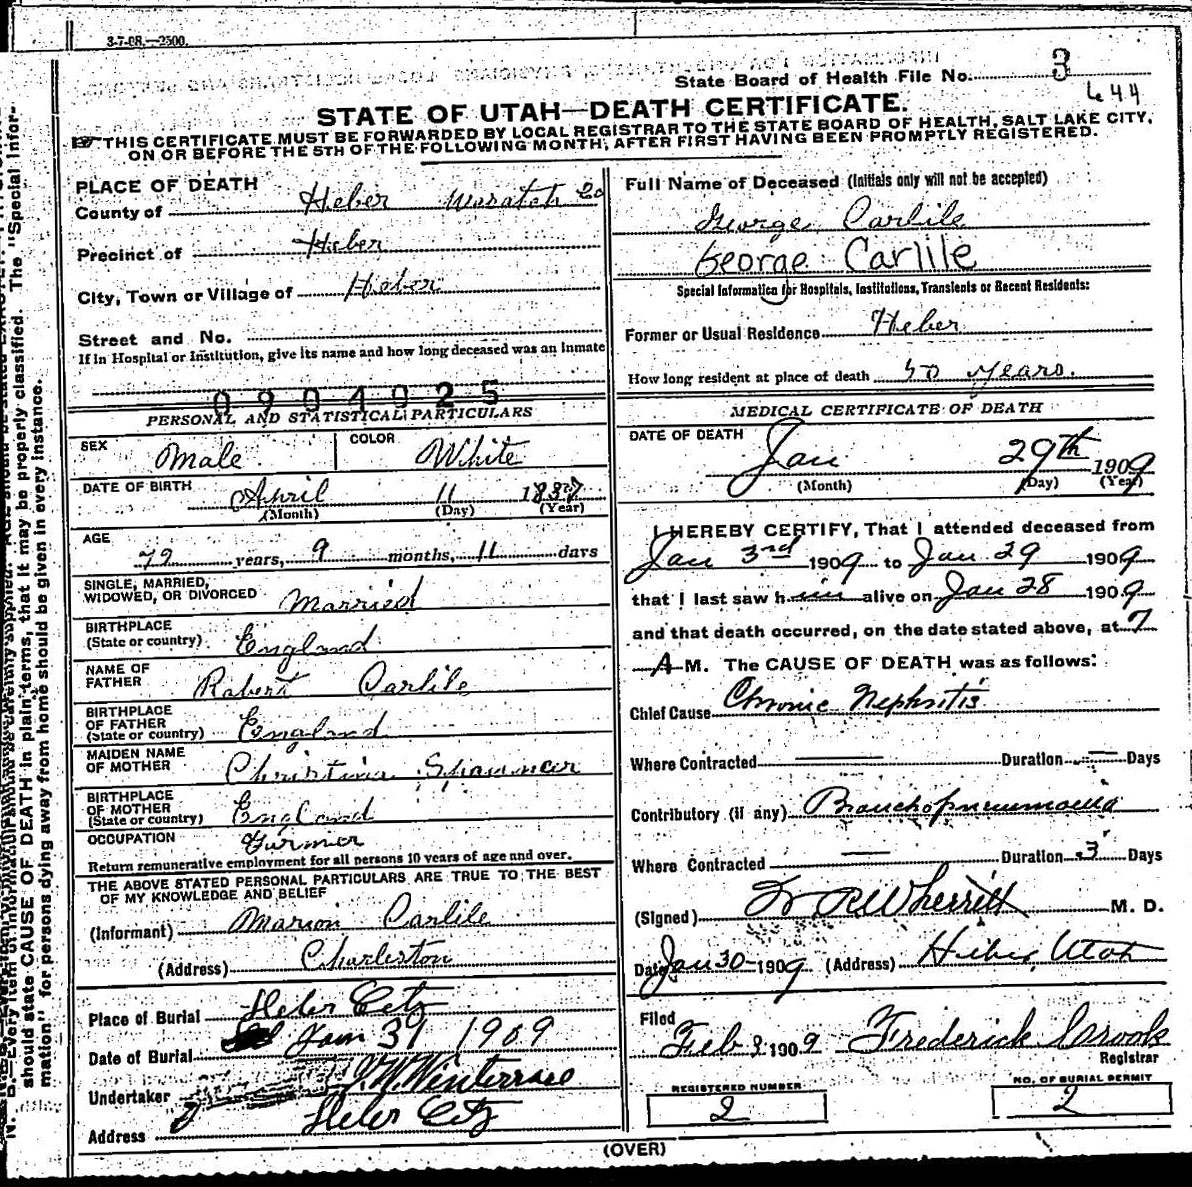 3-7-08.—2500.
State Board of Health File No. 3
644
STATE OF UTAH—DEATH CERTIFICATE.
THIS CERTIFICATE MUST BE FORWARDED BY LOCAL REGISTRAR TO THE STATE BOARD OF HEALTH, SALT LAKE CITY,
ON OR BEFORE THE 5TH OF THE FOLLOWING MONTH, AFTER FIRST HAVING BEEN PROMPTLY REGISTERED.
PLACE OF DEATH
County of Heber Wasatch Co
Precinct of Heber
City, Town or Village of Heber
Street and No.
If in Hospital or Institution, give its name and how long deceased was an inmate
0904025
PERSONAL AND STATISTICAL PARTICULARS
SEX Male
COLOR White
DATE OF BIRTH April 11
(Month) (Day) (Year)
AGE
72 years, 9 months, 11 days
SINGLE, MARRIED,
WIDOWED, OR DIVORCED Married
BIRTHPLACE
(State or country) England
NAME OF
FATHER Robert Carlile
BIRTHPLACE
OF FATHER
(State or country) England
MAIDEN NAME
OF MOTHER Christina
BIRTHPLACE
OF MOTHER
(State or country) England
OCCUPATION Farmer
Return remunerative employment for all persons 10 years of age and over.
THE ABOVE STATED PERSONAL PARTICULARS ARE TRUE TO THE BEST
OF MY KNOWLEDGE AND BELIEF
(Informant) Marion Carlile
(Address) Charleston
Place of Burial Heber City
Date of Burial Jan 31 1909
Undertaker
Address Heber City
Full Name of Deceased (Initials only will not be accepted)
George Carlile
George Carlile
Special Information for Hospitals, Institutions, Transients or Recent Residents:
Former or Usual Residence Heber
How long resident at place of death 50 years.
MEDICAL CERTIFICATE OF DEATH
DATE OF DEATH
Jan 29th 1909
(Month) (Day) (Year)
I HEREBY CERTIFY, That I attended deceased from
Jan 3rd 1909 to Jan 29 1909
that I last saw him alive on Jan 28 1909
and that death occurred, on the date stated above, at 7
A M. The CAUSE OF DEATH was as follows:
Chief Cause Chronic Nephritis
Where Contracted — Duration — Days
Contributory (if any) Bronchopneumonia
Where Contracted — Duration 3 Days
(Signed) M. D.
Date Jan 30 1909 (Address) Heber, Utah
Filed
Feb 3 1909 Frederick Crook
Registrar
REGISTERED NUMBER
2
NO. OF BURIAL PERMIT
2
(OVER)
should state CAUSE OF DEATH in plain terms, that it may be properly classified. The "Special Infor-
mation" for persons dying away from home should be given in every instance.